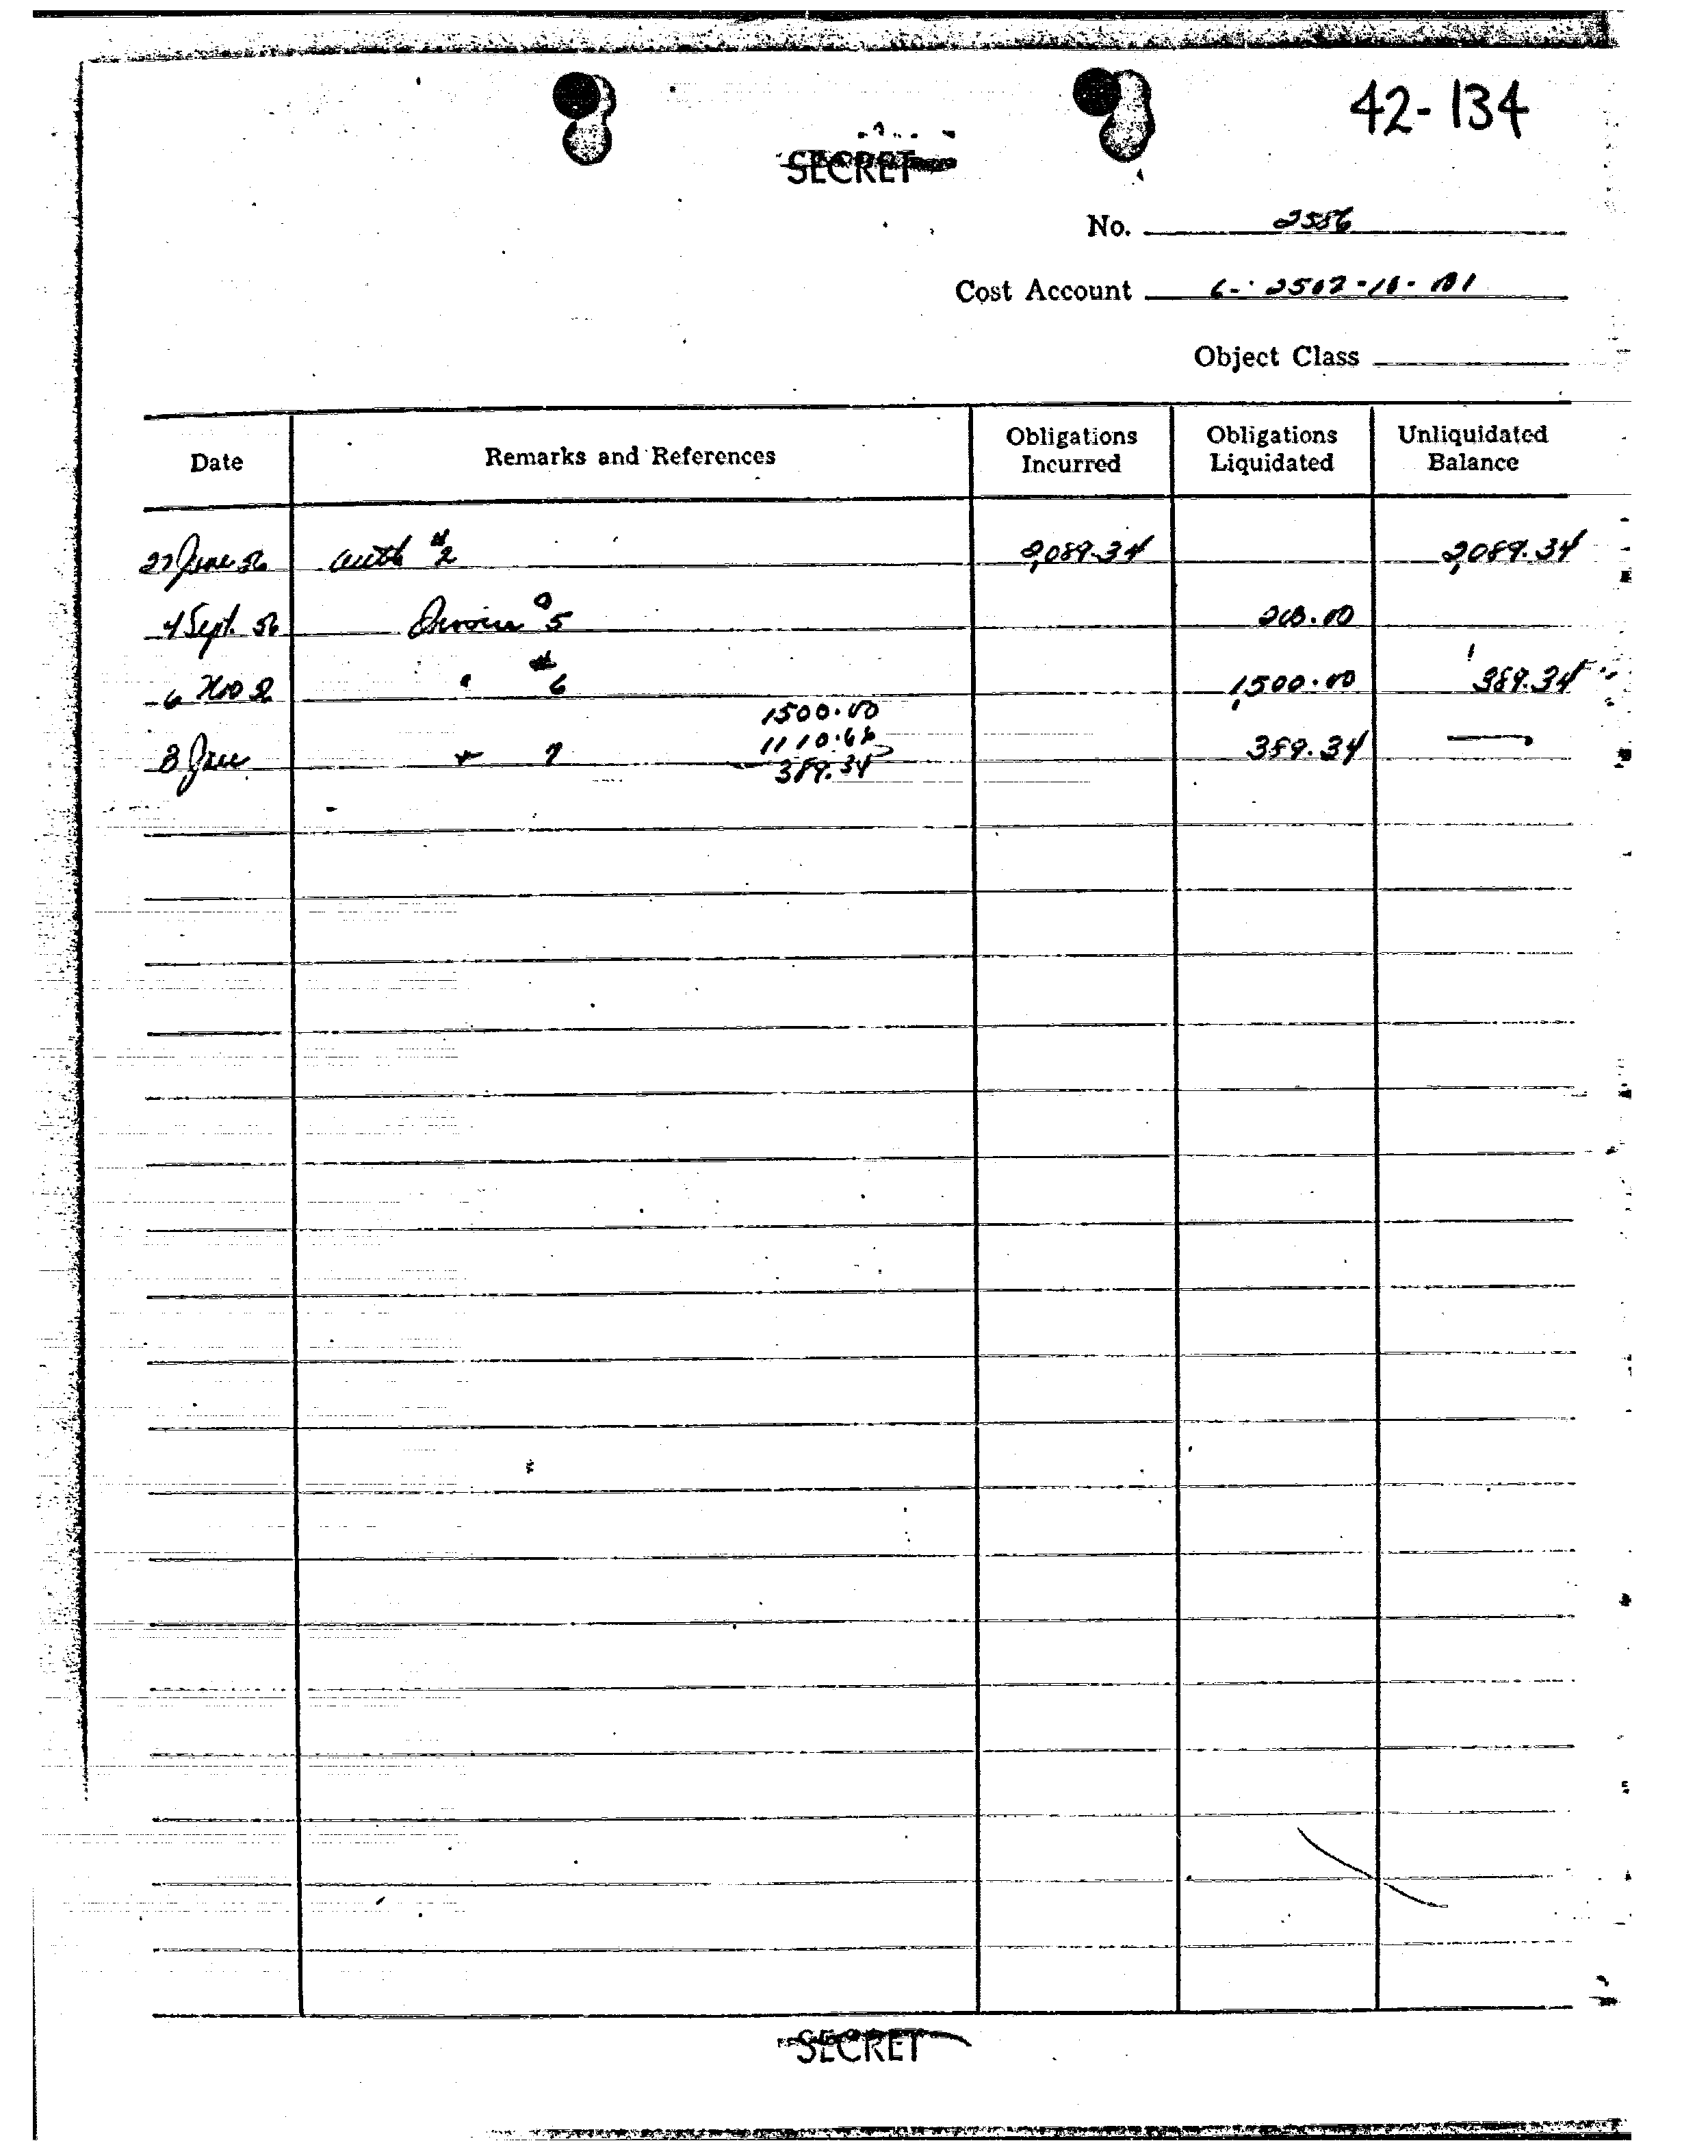 42-134
SECRET
No. 2586
Cost Account 6-2502-10-001
Object Class
Date Remarks and References Obligations Incurred Obligations Liquidated Unliquidated Balance
27 June 56 auth #2 2,089.34 2,089.34
4 Sept. 56 #5 200.00
6 #6 1,500.00 389.34
1500.00
1110.66
8 " 7 389.34 389.34 —
SECRET